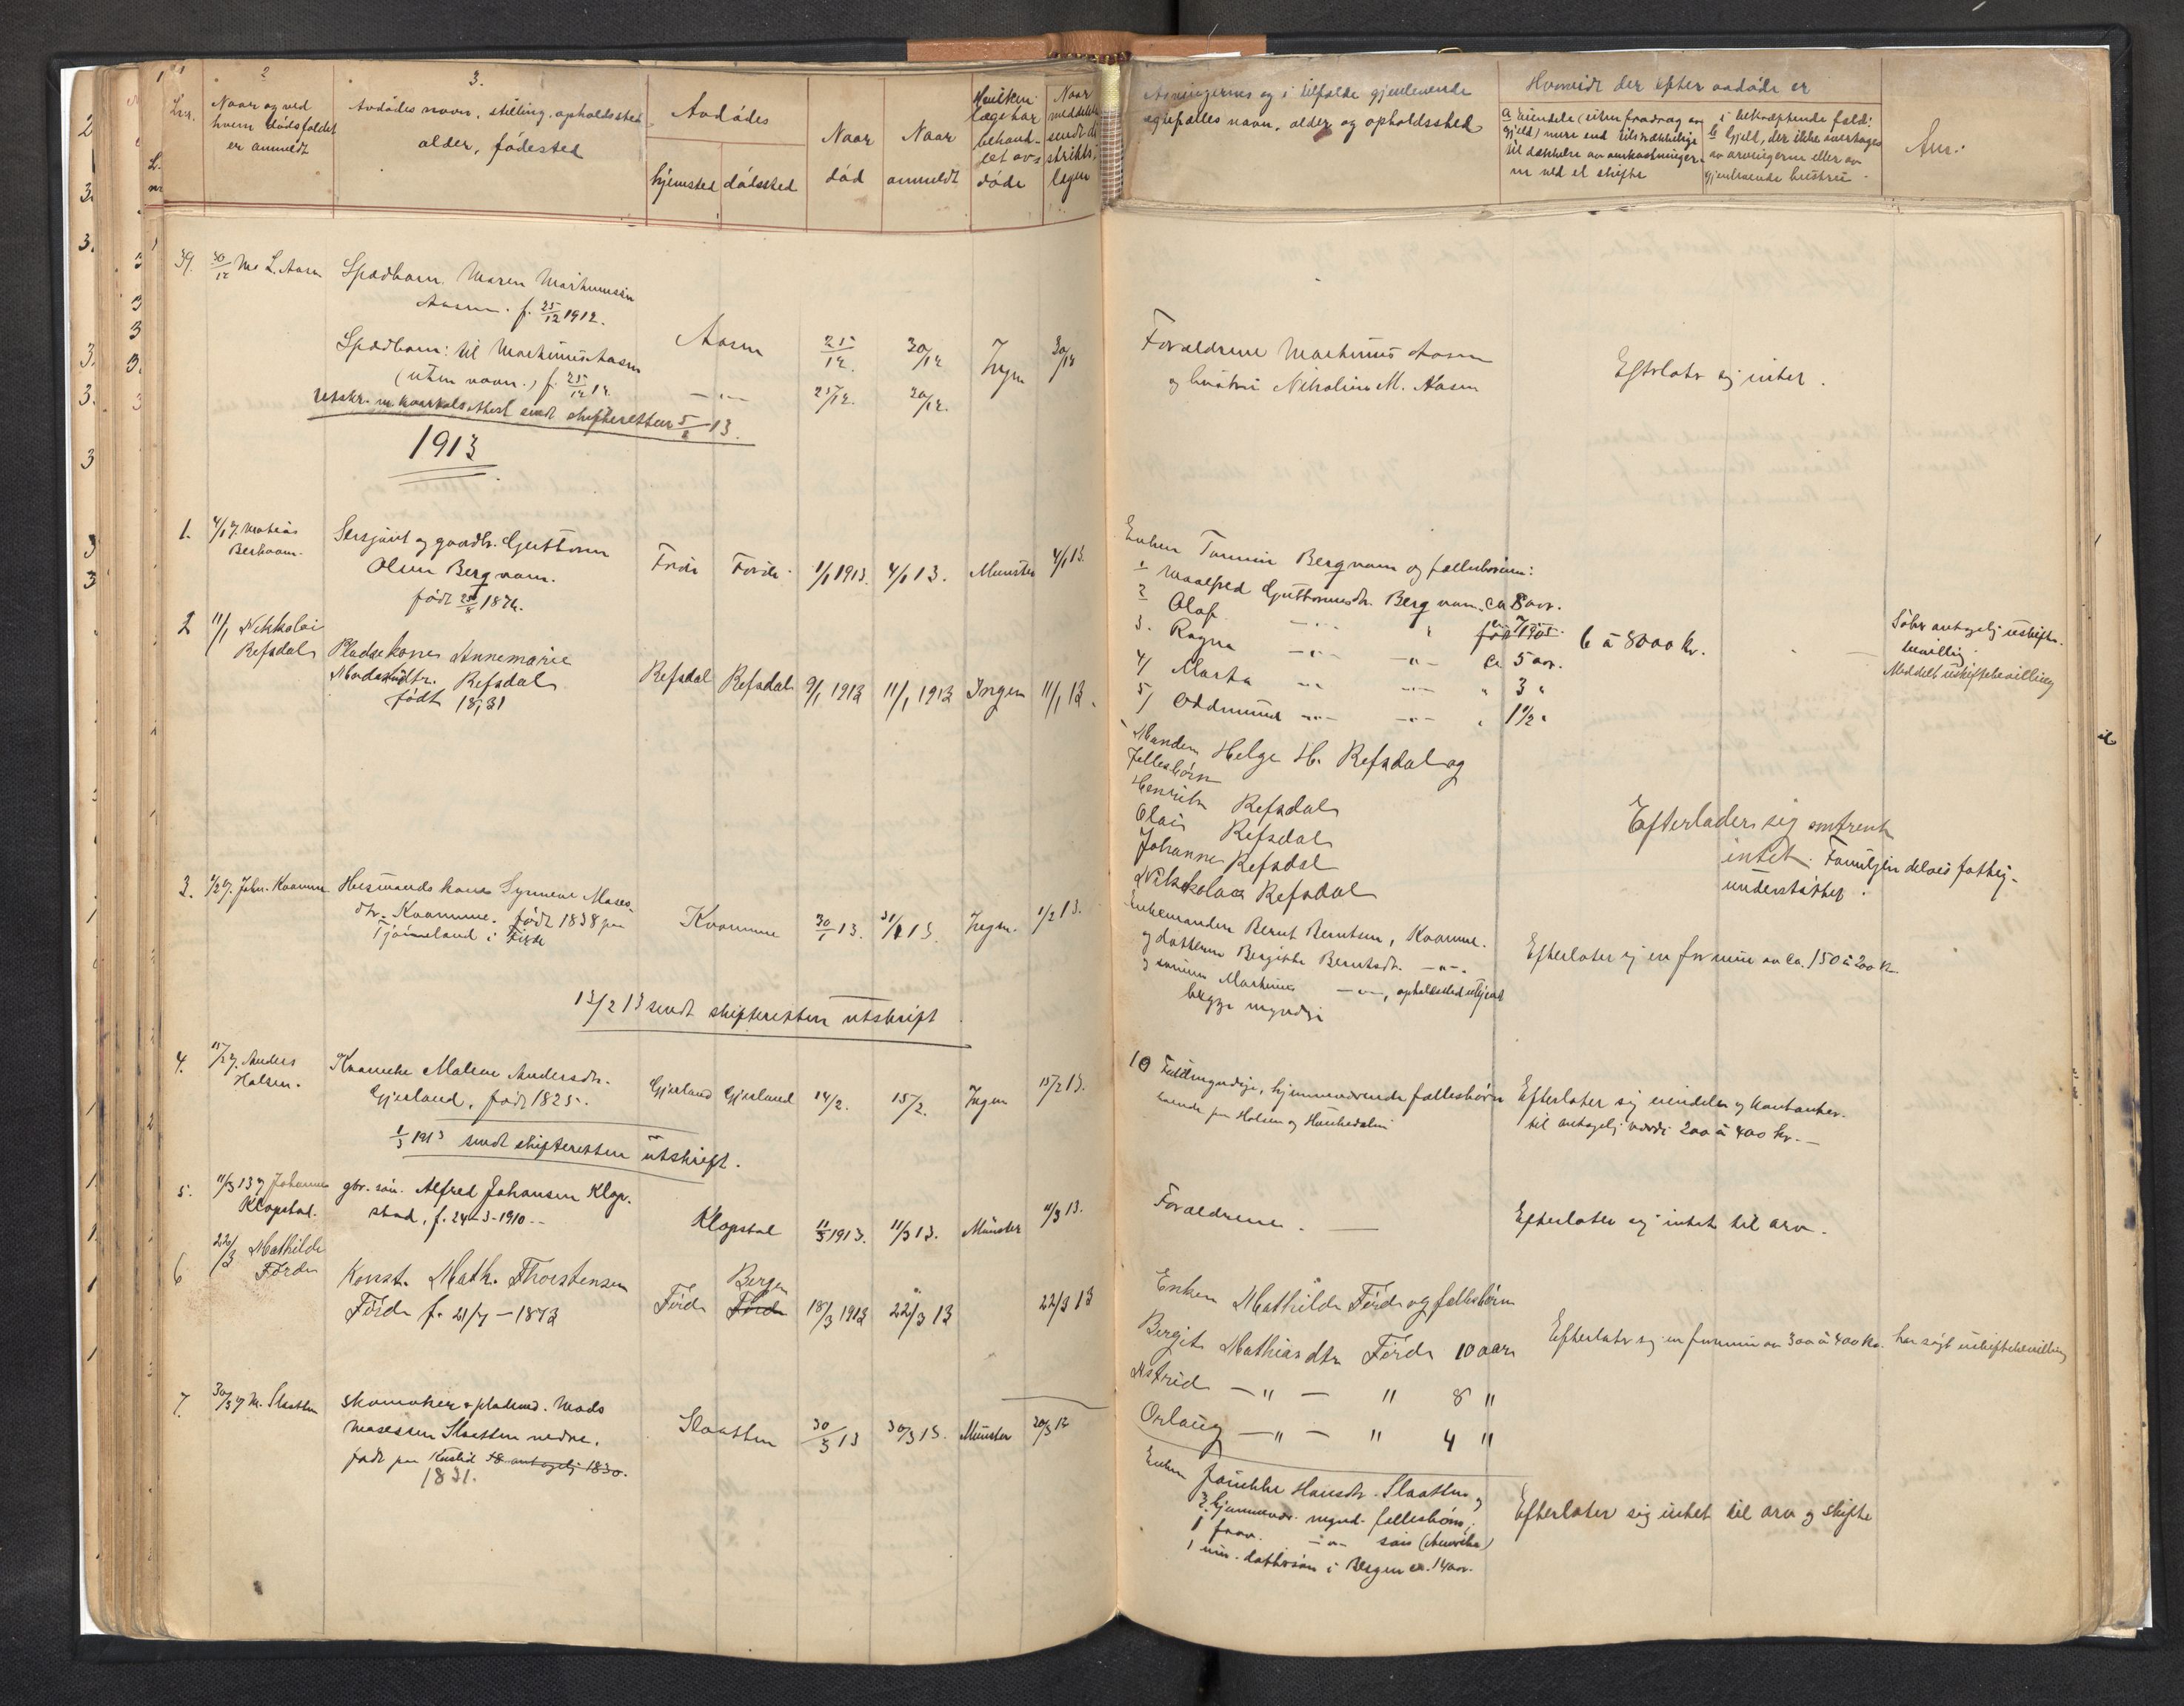 1
2
3.
L.nr.
Naar og ved
hvem dödsfaldet
er anmeldt
Avdödes navn, stilling, opholdssted
alder, födested
Avdödes
hjemsted dödssted
Naar
död
Naar
anmeldt
Hvilken
læge har
behand-
let av-
döde
Naar
meddelelse
sendt di-
strikts-
lægen
Arvingernes og i tilfælde gjenlevende
egtefælles navn, alder og opholdssted
Hvorvidt der efter avdöde er
a eiendele (uten fradrag av
gjeld) mere end tilstrækkelige
til dækkelse av omkostninger-
ne ved et skifte
i bekræftende fald:
b Gjeld, der ikke overtages
av arvingerne eller av
gjenlevende hustru
Anm.
39. 30/12 M. L. Aasen
Spædbarn Maren Martinusen
Aasen. f. 25/12 1912.
Spædbarn: til Martinus Aasen
(uten navn.) f. 25/12 12.
Aasen 25/12. 30/12 Ingen 30/12
— " — 25/12. 30/12.
Forældrene Martinus Aasen
og hustru Nikoline M. Aasen
Efterlater sig intet.
utskr. m kvartalsattest sendt skifteretten 5/1 13.
1913
1. 4/1 v. Matias
Bergvam.
Sersjant og gaardbr. Guttorm
Olsen Bergvam.
født 25/8 1874.
Förde Förde. 1/1 1913. 4/1 13. Munster 4/1 13.
Enken Tomine Bergvam og fællesbörn:
1 Maalfred Guttormsdtr. Bergvam. ca 8 aar.
2 Olaf — " — " født 7/1 1905.
3. Ragna — " — — " — ca 5 aar.
4/ Marta — " — — " — " 3 "
5/ Oddmund — " — — " — " 1½ "
6 à 8000 kr.
Söker antagelig uskifte-
bevilling.
Meddelt uskiftebevilling
2 11/1 Nikkolai
Refsdal
Pladsekone Annemarie
Madsdtr. Refsdal
födt 1831
Refsdal Refsdal 9/1 1913 11/1 1913 Ingen 11/1 13.
Manden Helge H. Refsdal og
Fellesbörn
Henrik Refsdal
Olai Refsdal
Johanne Refsdal
Nikkolai Refsdal
Efterlader sig omtrent
intet. Familjen delvis fattig-
understöttet.
3. 1/2 v. Johan Kvamme
Husmands kone Synneve Mons-
dtr. Kvamme. födt 1838 paa
Tjönneland i Förde
Kvamme 30/1 13. 31/1 13. Ingen. 1/2 13.
Enkemanden Bernt Berntsen, Kvamme.
og datteren Bergitte Berntsdtr. — " — .
og sönnen Martinus — " —, opholdssted ukjent
begge myndige
Efterlater sig en formue av ca. 150 à 200 kr.
13/2 13 sendt skifteretten utskrift
4. 15/2 v. Anders
Holsen.
Kaarenke Malene Andersdtr.
Gjesland, född 1825.
Gjesland Gjesland 14/2. 15/2. Ingen 15/2 13.
10 Fuldmyndige, hjemmeværende fællesbörn
boende paa Holsen og Haukedalen
Efterlater sig eiendeler og kontanter
til antagelig værdi 200 à 400 kr. —
1/3 1913 sendt skifteretten utskrift.
5. 11/3 13 v. Johannes
Klopstad.
gbr. sön. Alfred Johansen Klop-
stad, f. 24-3-1910.
Klopstad 11/3 1913. 11/3 13. Münster 11/3 13.
Forældrene. —
Efterlater sig intet til arv.
6 22/3 Mathilde
Förde
Konst. Math. Thorstensen
Förde f. 21/7 – 1873
Förde Bergen
Förde 18/3 1913 22/3 13 22/3 13
Enken Mathilde Förde og fellesbörn
Bergit Mathiasdtr Förde 10 aar
Astrid — " — " 8 "
Orlaug — " — " 4 "
Efterlater sig en formue av 300 à 400 kr. har sögt uskiftebevilling
7. 30/3 v. M. Slaatten
Skomaker & pladsmd. Mads
Monsen Slaatten nedre.
födt paa Kusslid 48 antagelig 1830.
1831.
Slaatten 30/3 13 30/3 13. Münster 30/3 13
Enken Jonikke Hansdtr. Slaatten og
2 hjemmevær. mynd. fellesbörn,
1 frav. — " — sön (Amerika)
1 um. dattersön i Bergen ca. 14 aar.
Efterlater sig intet til arv og skifte